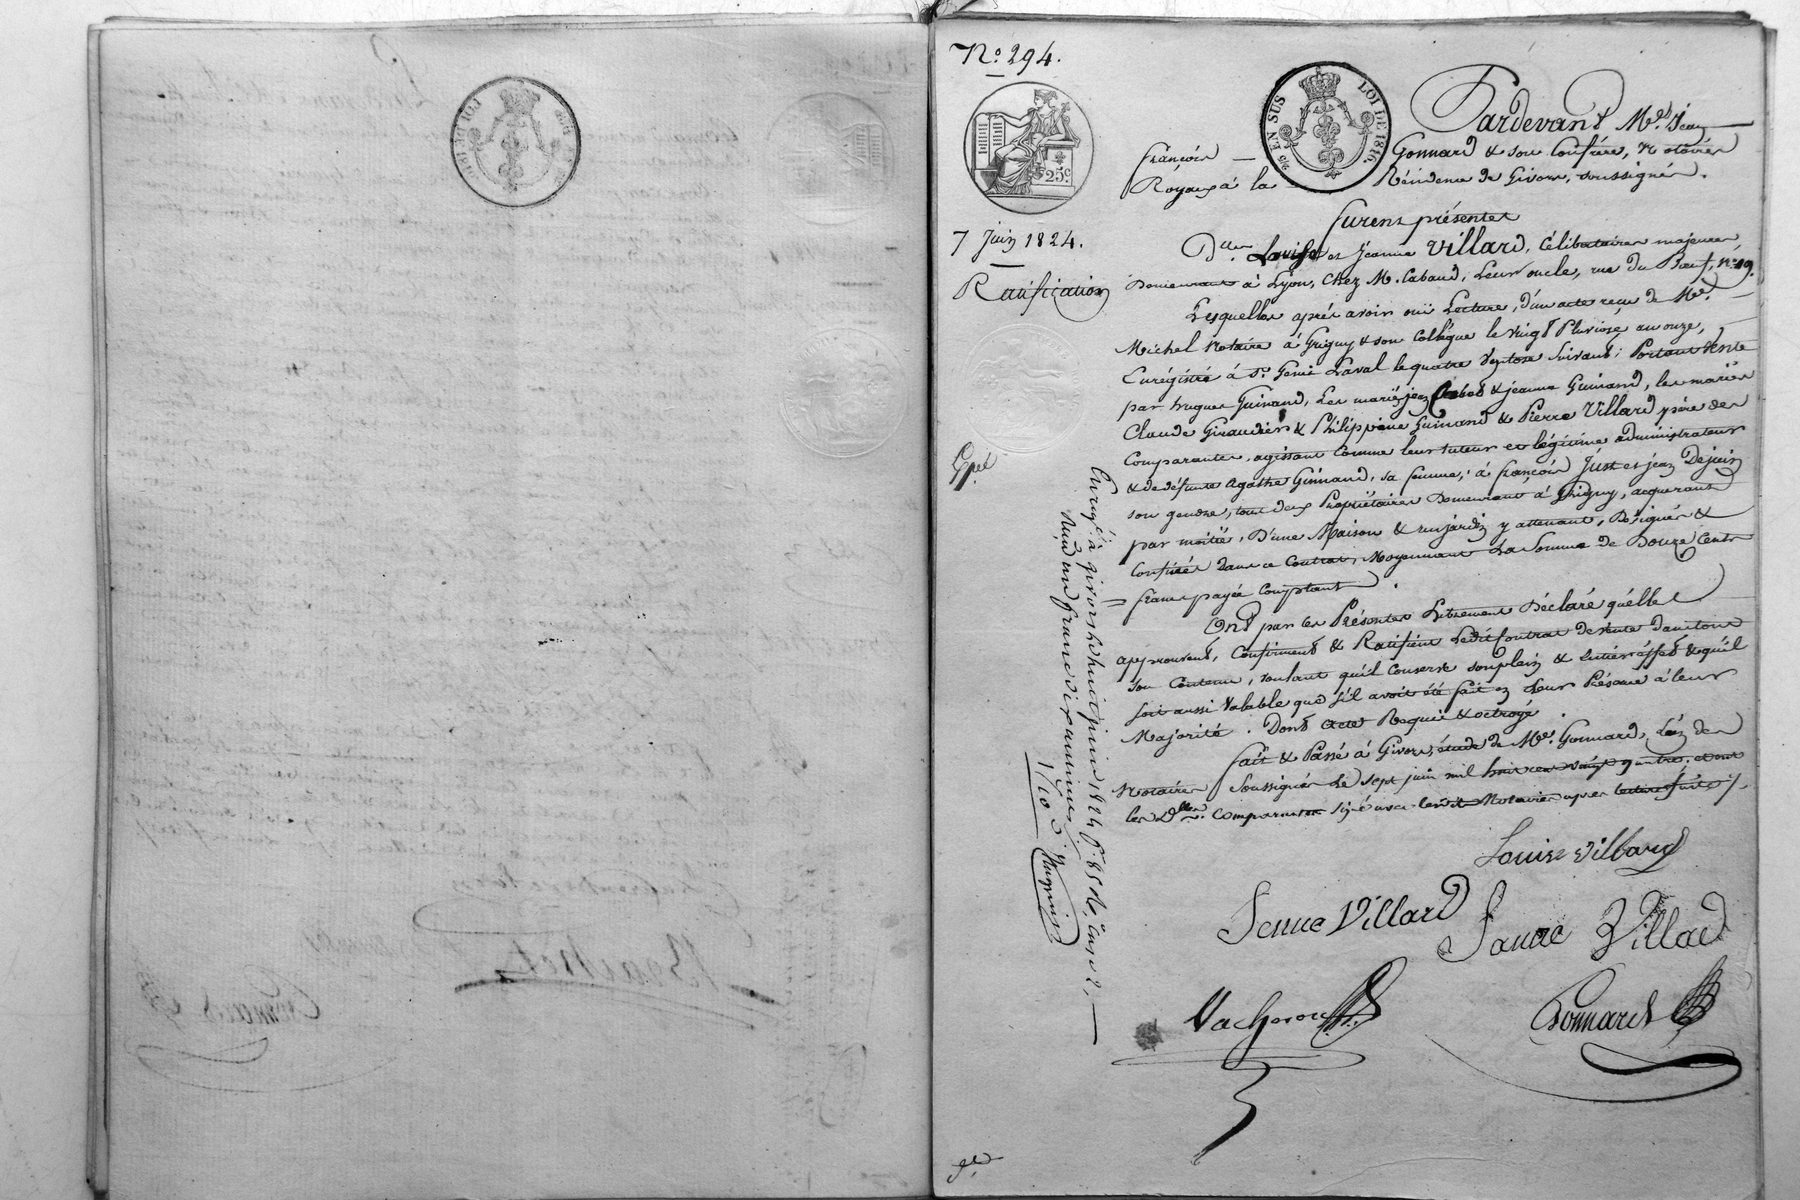 N.º 294.
25.c
7 Juin 1824.
Ratification
Exped
c/s EN SUS
LOI DE 1816.
Pardevant M.es Jean
François Gonnard & son Confrère, Notaires
Royaux à la Résidence de Givors, soussignés.
Furent présentes
D.lles Louise et Jeanne Villard, Célibataires majeures
Demeurant à Lyon, Chez M. Cabaud, Leur oncle, rue du Bœuf, N.º 19.
Lesquelles après avoir ouï Lecture, d'un acte reçu de M.e
Michel Notaire à Grigny & son Collègue le vingt Pluviose an onze,
Enrégistré à S.t Genis Laval le quatre Ventose Suivant; Portant Vente
par hugues Guinand, Les mariés jean & jeanne Guinand, les mariés
Claude Giraudier & Philippine Guinand & Pierre Villard père des
Comparantes, agissant Comme leur tuteur et légitime administrateur
& de défunte Agathe Guinand, sa femme; à françois Just et jean Dejuin
son gendre, tous deux Propriétaires Demeurant à Grigny, acquerant
par moitié, D'une Maison & un jardin y attenant, Désignés &
Confinés dans ce Contrat, Moyennant La Somme de Douze Cents
francs payée Comptant
Ont par les Présentes Librement Déclaré qu'elles
approuvent, Confirment & Ratifient Ledit Contrat de vente dans tout
Son Contenu, voulant qu'il Conserve son plein & entier effet & qu'il
soit aussi Valable que s'il avoit été fait en Leur Présence à leur
Majorité. Dont Acte Requis & octroyé
fait & Passé à Givors, étude de M.e Gonnard, L'un des
Notaires Soussignés Le sept juin mil huit cent vingt quatre, et ont
les D.lles Comparantes signé avec lesdits Notaires après lecture faite ./.
Louise villard
Jenne Villard
Janne Villard
Vacheron
Gonnard
Enreg.é à givors le huit juin 1824 f.º 85 V.º, Case 2,
Reçu un franc dix centimes
1/10 c